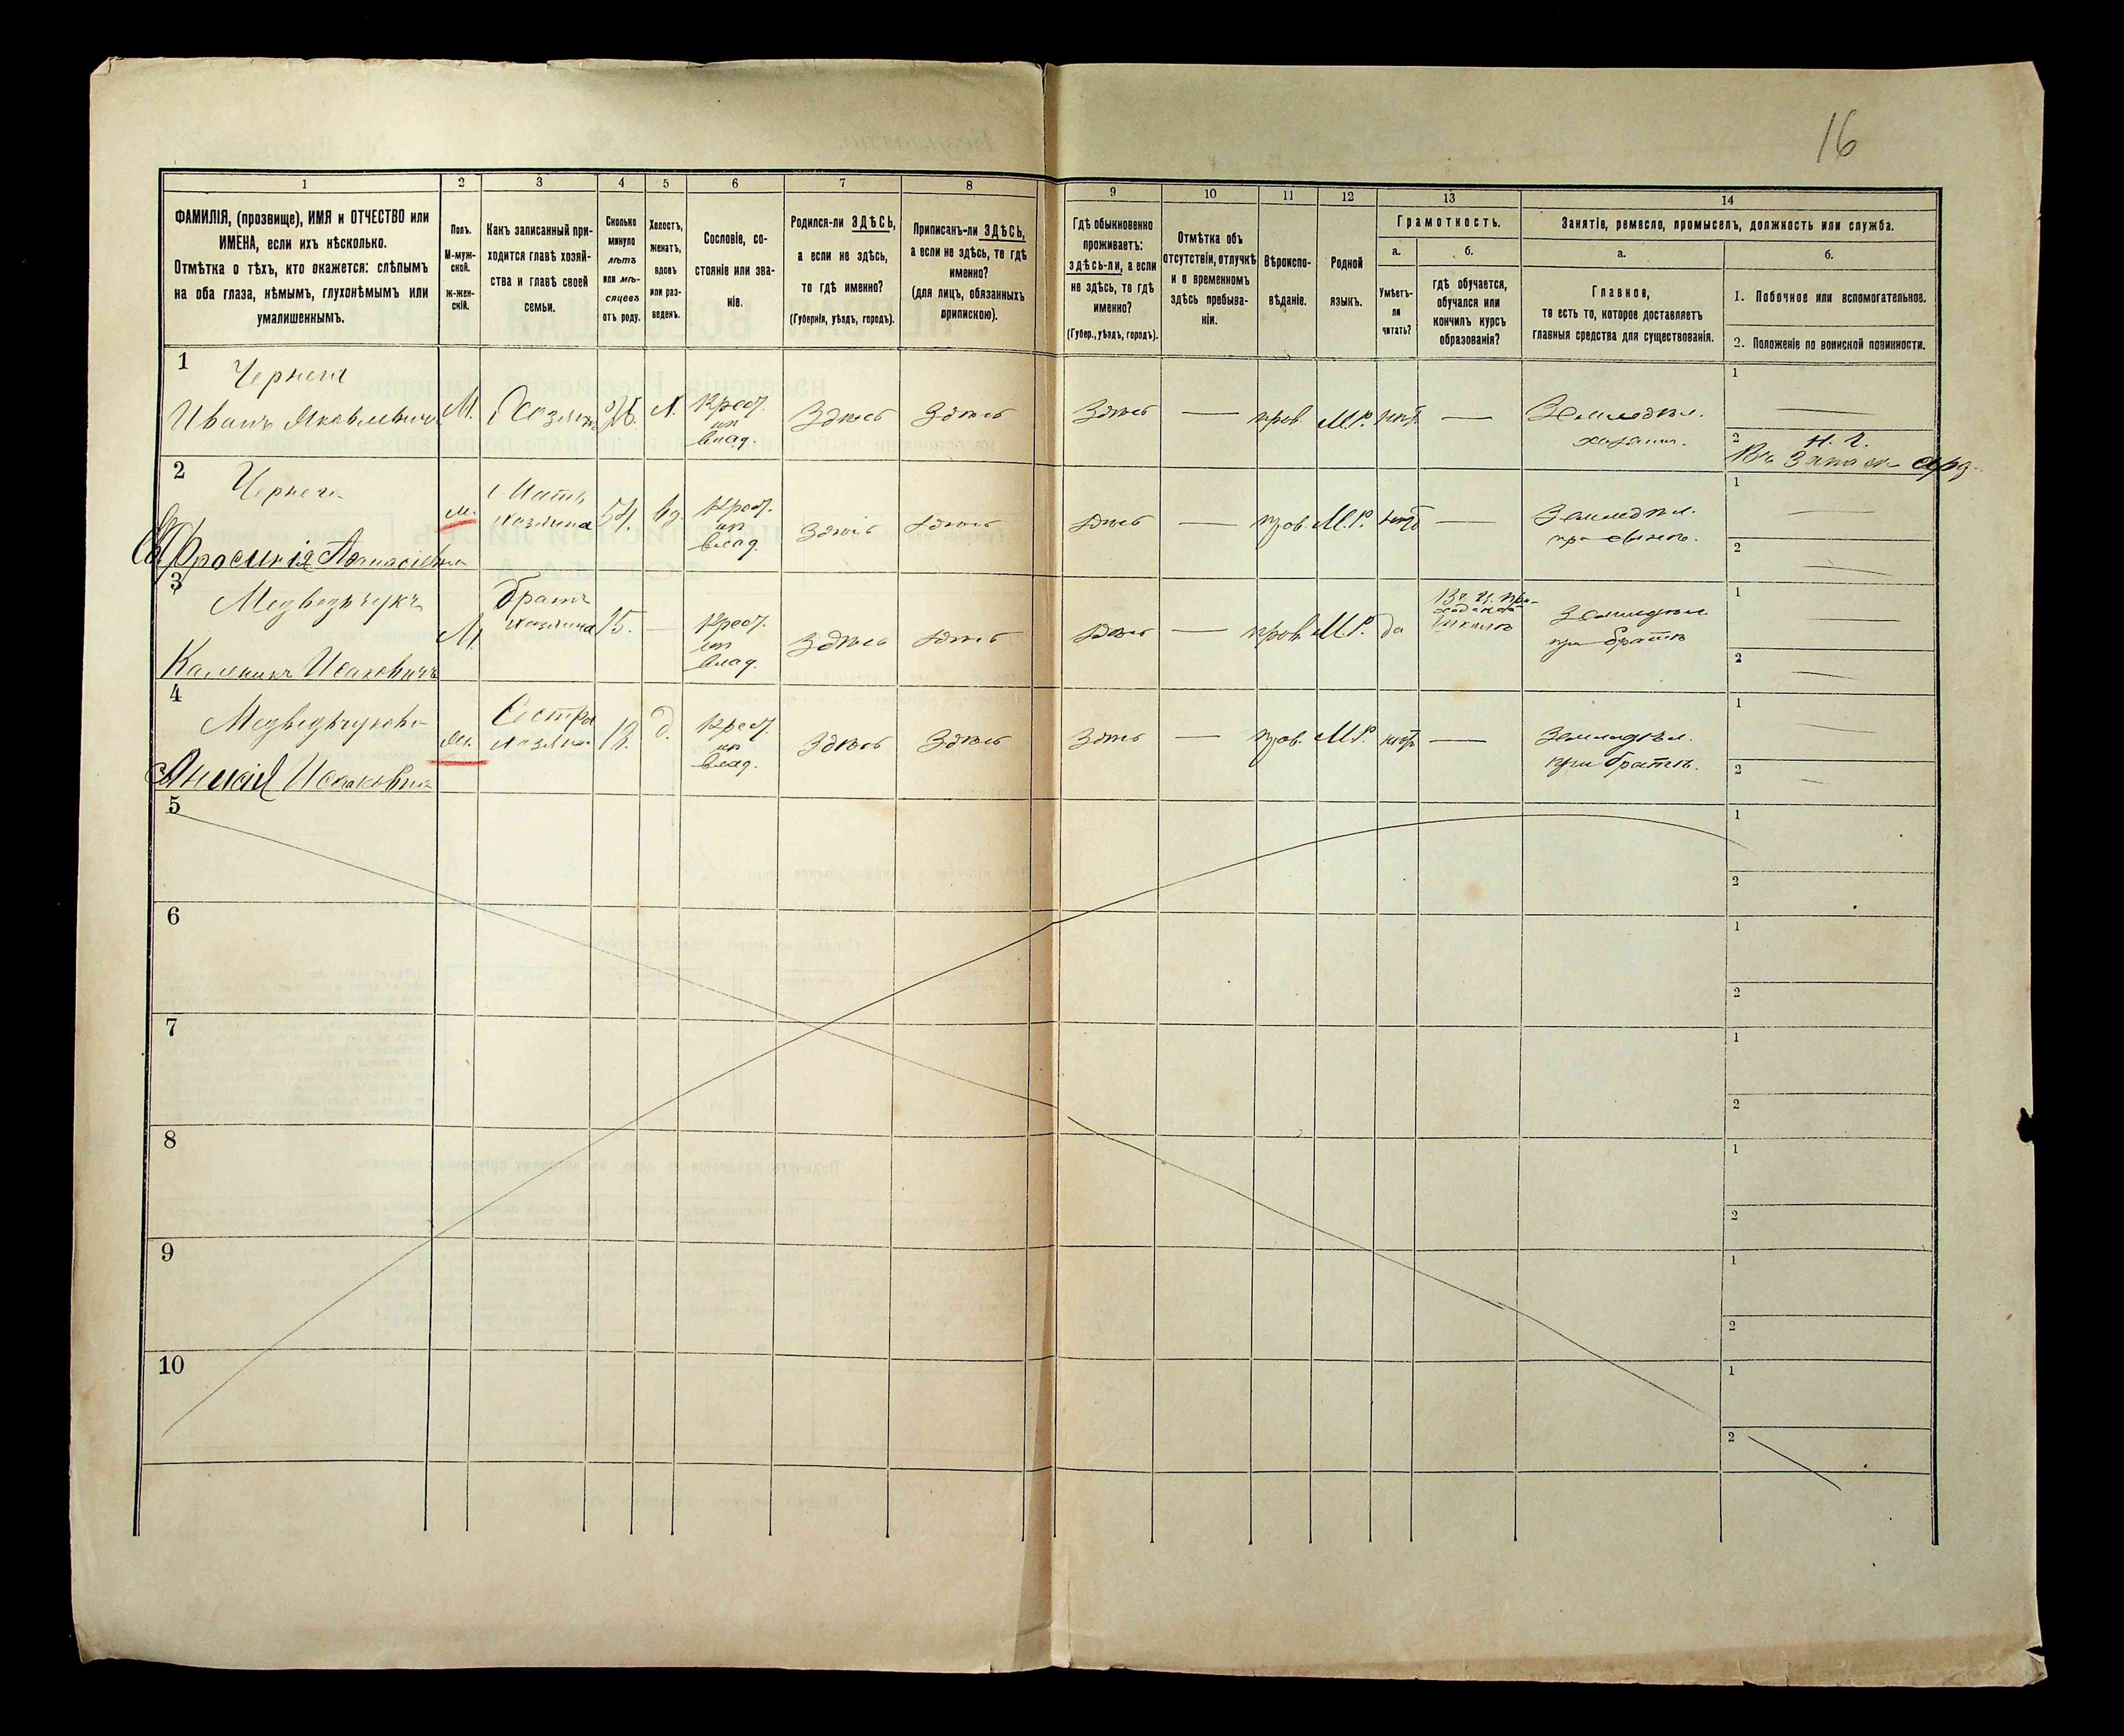 16
1 2 3 4 5 6 7 8 9 10 11 12 13 14
ФАМИЛІЯ, (прозвище), ИМЯ и ОТЧЕСТВО или
ИМЕНА, если ихъ нѣсколько.
Отмѣтка о тѣхъ, кто окажется: слѣпымъ
на оба глаза, нѣмымъ, глухонѣмымъ или
умалишеннымъ.
Полъ.
М-муж-
ской.
Ж-жен-
скій.
Какъ записанный при-
ходится главѣ хозяй-
ства и главѣ своей
семьи.
Сколько
минуло
лѣтъ
или мѣ-
сяцевъ
отъ роду.
Холостъ,
женатъ,
вдовъ
или раз-
веденъ.
Сословіе, со-
стояніе или зва-
ніе.
Родился-ли ЗДѢСЬ,
а если не здѣсь,
то гдѣ именно?
(Губернія, уѣздъ, городъ).
Приписанъ-ли ЗДѢСЬ,
а если не здѣсь, то гдѣ
именно?
(для лицъ, обязанныхъ
припискою).
Гдѣ обыкновенно
проживаетъ:
здѣсь-ли, а если
не здѣсь, то гдѣ
именно?
(Губер., уѣздъ, городъ).
Отмѣтка объ
отсутствіи, отлучкѣ
и о временномъ
здѣсь пребыва-
ніи.
Вѣроиспо-
вѣданіе.
Родной
языкъ.
Грамотность.
а.
Умѣетъ-
ли
читать?
б.
гдѣ обучается,
обучался или
кончилъ курсъ
образованія?
Занятіе, ремесло, промыселъ, должность или служба.
а.
Главное,
то есть то, которое доставляетъ
главныя средства для существованія.
б.
1. Побочное или вспомогательное.
2. Положеніе по воинской повинности.
1
Чернега
Иванъ Яковлевичъ
М.
Хозяинъ
26.
Х.
Крест.
из
влад.
Здѣсь
Здѣсь
Здѣсь
—
прав.
М.Р.
нѣт
—
Земледѣл.
хозяин.
1
—
2
Н. Ч.
Въ Запасѣ
2
Чернега
Евфросинія Афанасіевна
м.
Мать
хозяина
54.
вд.
Крест.
из
влад.
Здѣсь
Здѣсь
Здѣсь
—
прав.
М.Р.
нѣт
—
Земледѣл.
при сынѣ.
1
—
2
—
3
Медведчукъ
Каленикъ Исаковичъ
М.
братъ
хозяина
15.
—
Крест.
из
влад.
Здѣсь
Здѣсь
Здѣсь
—
прав.
М.Р.
да
школѣ
Земледѣл.
при братѣ
1
—
2
—
4
Медведчукова
Исаковна
м.
Сестра
хозяина
13.
д.
Крест.
из
влад.
Здѣсь
Здѣсь
Здѣсь
—
прав.
М.Р.
нѣт
—
Земледѣл.
при братѣ.
1
—
2
—
5
1
2
6
1
2
7
1
2
8
1
2
9
1
2
10
1
2